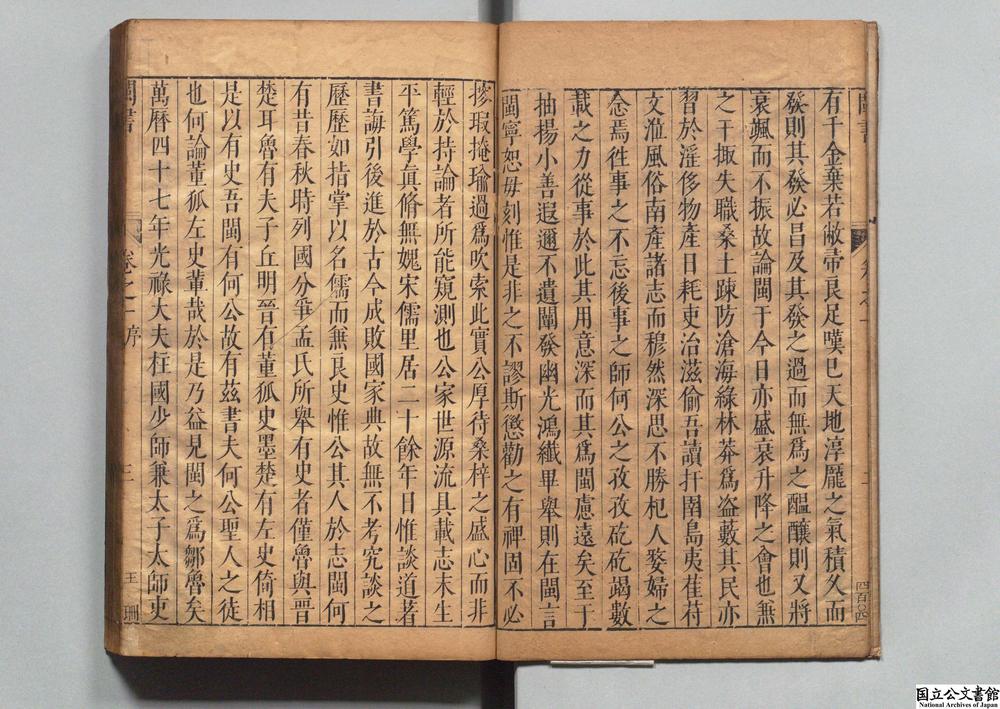 有千金棄若敝帚良足嘆已天地淳龐之氣積久而
發則其發必昌及其發之過而無為之醞釀則又將
衰颯而不振故論閩于今日亦盛衰升降之會也無
之干掫失職桑土踈防滄海綠林莽為盜藪其民亦
習於淫侈物產日耗吏治滋偷吾讀扞圉島夷萑苻
文涖風俗南產諸志而穆然深思不勝杞人嫠婦之
念焉徃事之不忘後事之師何公之孜孜矻矻竭數
載之力從事於此其用意深而其為閩慮遠矣至于
抽揚小善遐邇不遺闡發幽光鴻纖畢舉則在閩言
閩寧恕毋刻惟是非之不謬斯懲勸之有裨固不必
四百〇四
摉瑕掩瑜過為吹索此實公厚待桑梓之盛心而非
輕於持論者所能窺測也公家世源流具載志末生
平篤學真脩無媿宋儒里居二十餘年日惟談道著
書誨引後進於古今成敗國家典故無不考究談之
歷歷如指掌以名儒而無良史惟公其人於志閩何
有昔春秋時列國分爭孟氏所舉有史者僅魯與晉
楚耳魯有夫子丘明晉有董狐史墨楚有左史倚相
是以有史吾閩有何公故有茲書夫何公聖人之徒
也何論董狐左史董哉於是乃益見閩之為鄒魯矣
萬曆四十七年光祿大夫柱國少師兼太子太師吏
閩書
卷之一 序
三
王 珊
国立公文書館
National Archives of Japan